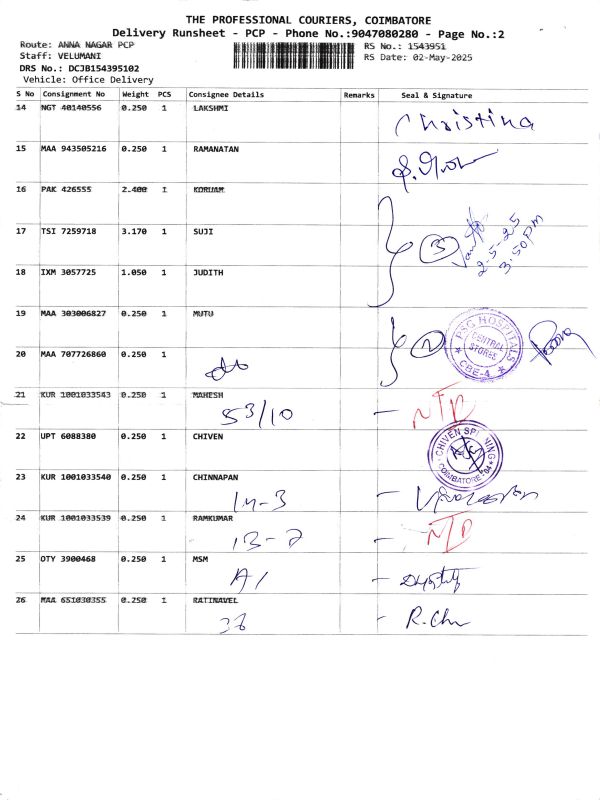 THE PROFESSIONAL COURIERS, COIMBATORE
Delivery Runsheet - PCP - Phone No.:9047080280 - Page No.:2
Route: ANNA NAGAR PCP
RS No.: 1543951
Staff: VELUMANI
RS Date: 02-May-2025
DRS No.: DCJB154395102
Vehicle: Office Delivery
S No Consignment No Weight PCS Consignee Details Remarks Seal & Signature
14 NGT 40140556 0.250 1 LAKSHMI
Christina
15 MAA 943505216 0.250 1 RAMANATAN
16 PAK 426555 2.400 1 KORUAM
17 TSI 7259718 3.170 1 SUJI
3
2-5-25
3.50pm
18 IXM 3057725 1.050 1 JUDITH
19 MAA 303006827 0.250 1 MUTU
2
PSG HOSPITALS
CENTRAL STORES
CBE-4
20 MAA 707726860 0.250 1
do
21 KUR 1001033543 0.250 1 MAHESH
53/10 - NTD
22 UPT 6088380 0.250 1 CHIVEN
CHIVEN SPINNING
COIMBATORE
23 KUR 1001033540 0.250 1 CHINNAPAN
24 KUR 1001033539 0.250 1 RAMKUMAR
13-2 - NTD
25 OTY 3900468 0.250 1 MSM
A1
26 MAA 651030355 0.250 1 RATINAVEL